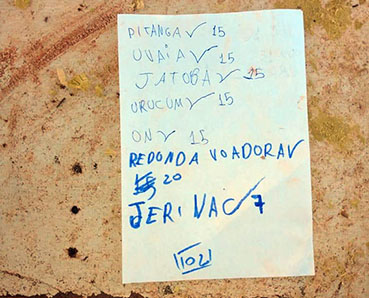 PITANGA ✓ 15
UVAIA ✓ 15
JATOBÁ ✓ 15
URUCUM ✓ 15
15
REDONDA VOADORA ✓
20
JERIVAC ✓ 7
102